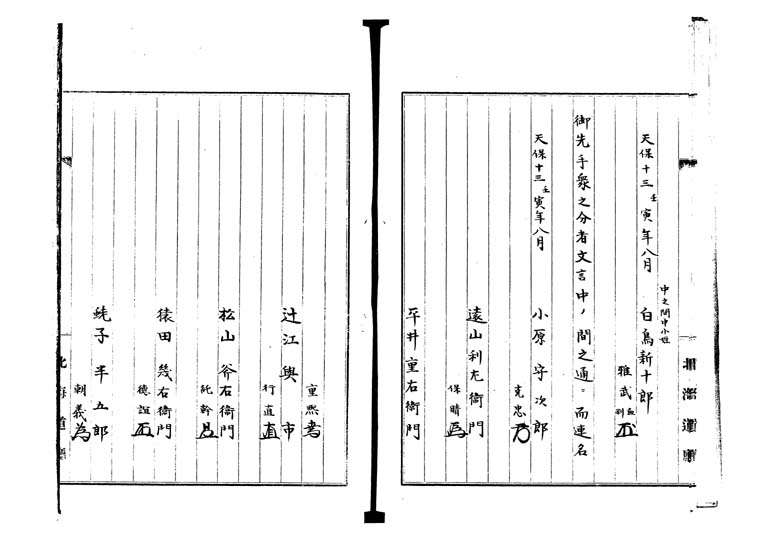 天保十三壬寅年八月
中之間中小姓
白鳥新十郎
雅武血判
御先手衆之分者文言中ノ間之通ニ而連名
天保十三壬寅年八月
小原守次郎
克忠
遠山利左衛門
保晴
平井重右衛門
重熙
辻江與市
行直
松山斧右衛門
純幹
猿田幾右衛門
徳誼
蚝子半五郎
朝義
北海道廳